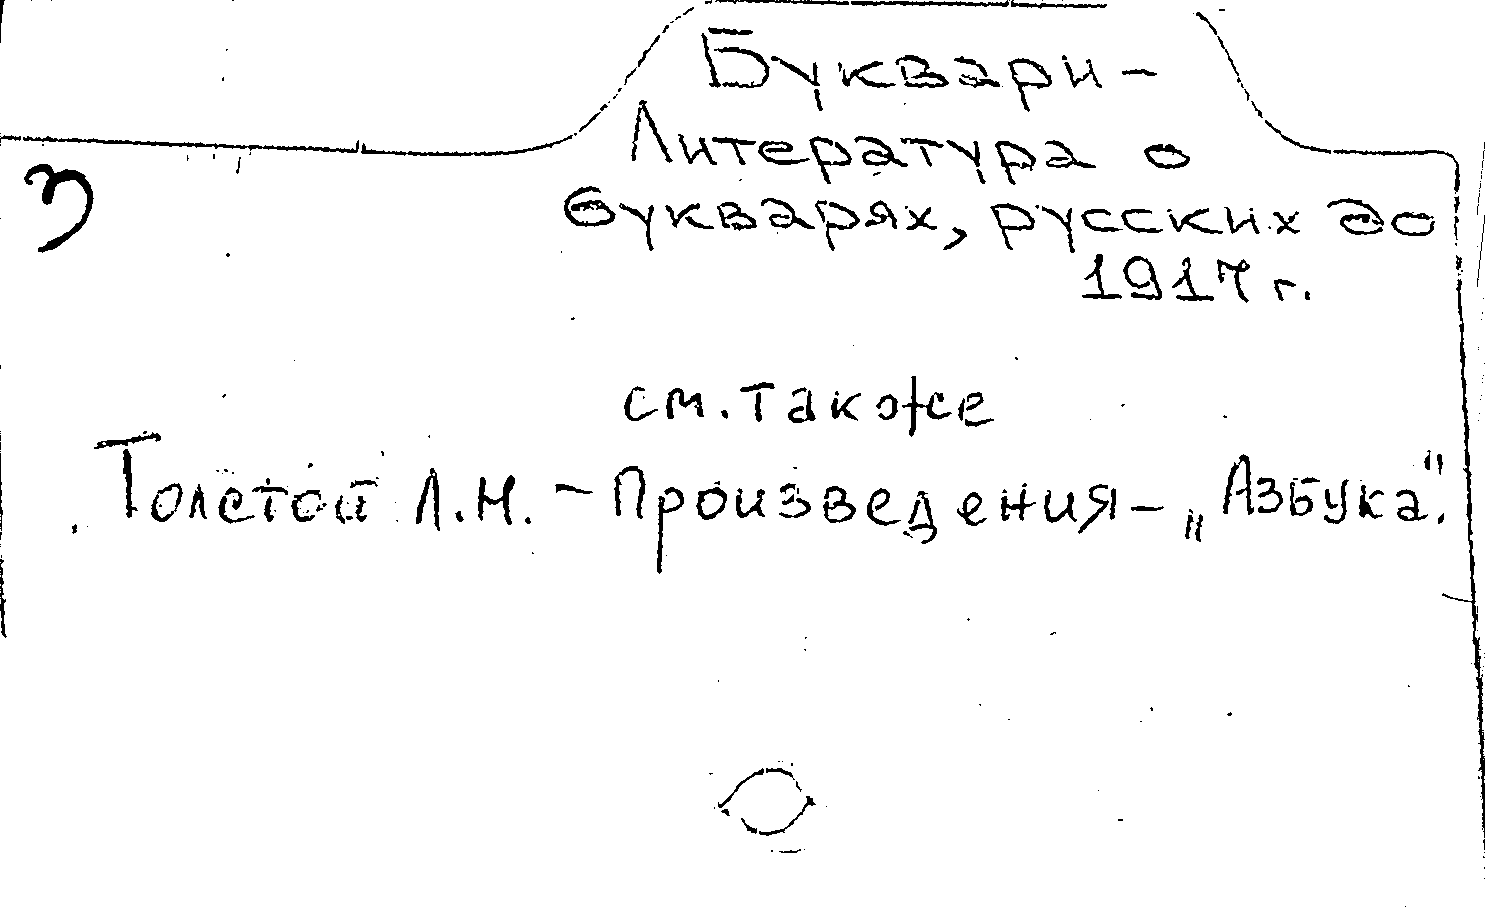 Буквари -
Литература о
букварях, русских до
1917 г.
см. также
Толстой Л.Н. - Произведения - „Азбука“.